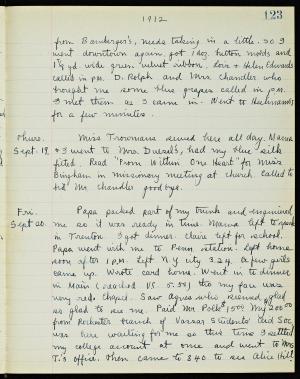 1912
123
from Bamberger's, needs taking in a little. So I
went downtown again, got 1 doz. button molds and
1 yd. wide green velvet ribbon. Lois & Helen Edwards
called in P.M. D. Rolph and Mrs. Chandler who
brought me some blue grapes called in P.M.
I met them as I came in. Went to
for a few minutes.
Thurs.
Sept. 19.
Miss Trowmans sewed here all day. Mama
& I went to Mrs. had my blue silk
fitted. Read "From Within One Heart" for Miss
Bingham in missionary meeting at church. Called to
bid Mr. Chandler goodbye.
Fri.
Sept 20.
Papa packed part of my trunk and
me so it was ready in time. Mama left to speak
in Trenton. I got dinner. Claire left for school.
Papa went with me to Penn station. Left home
soon after 1 P.M. Left N.Y. city 3.24. A few girls
came up. Wrote card home. Went in to dinner
in Main (reached V.S. 5.58) tho my face was
very red & chapped. Saw Agnes who seemed glad
as glad to see me. Paid Mr. Polk 15.00. My 200.00
from Rochester branch of Vassar Students' Aid Soc.
was here waiting for me so this time I settled
my college account at once and went to Mrs.
T.'s office. Then came to 340 to see Alice Hill